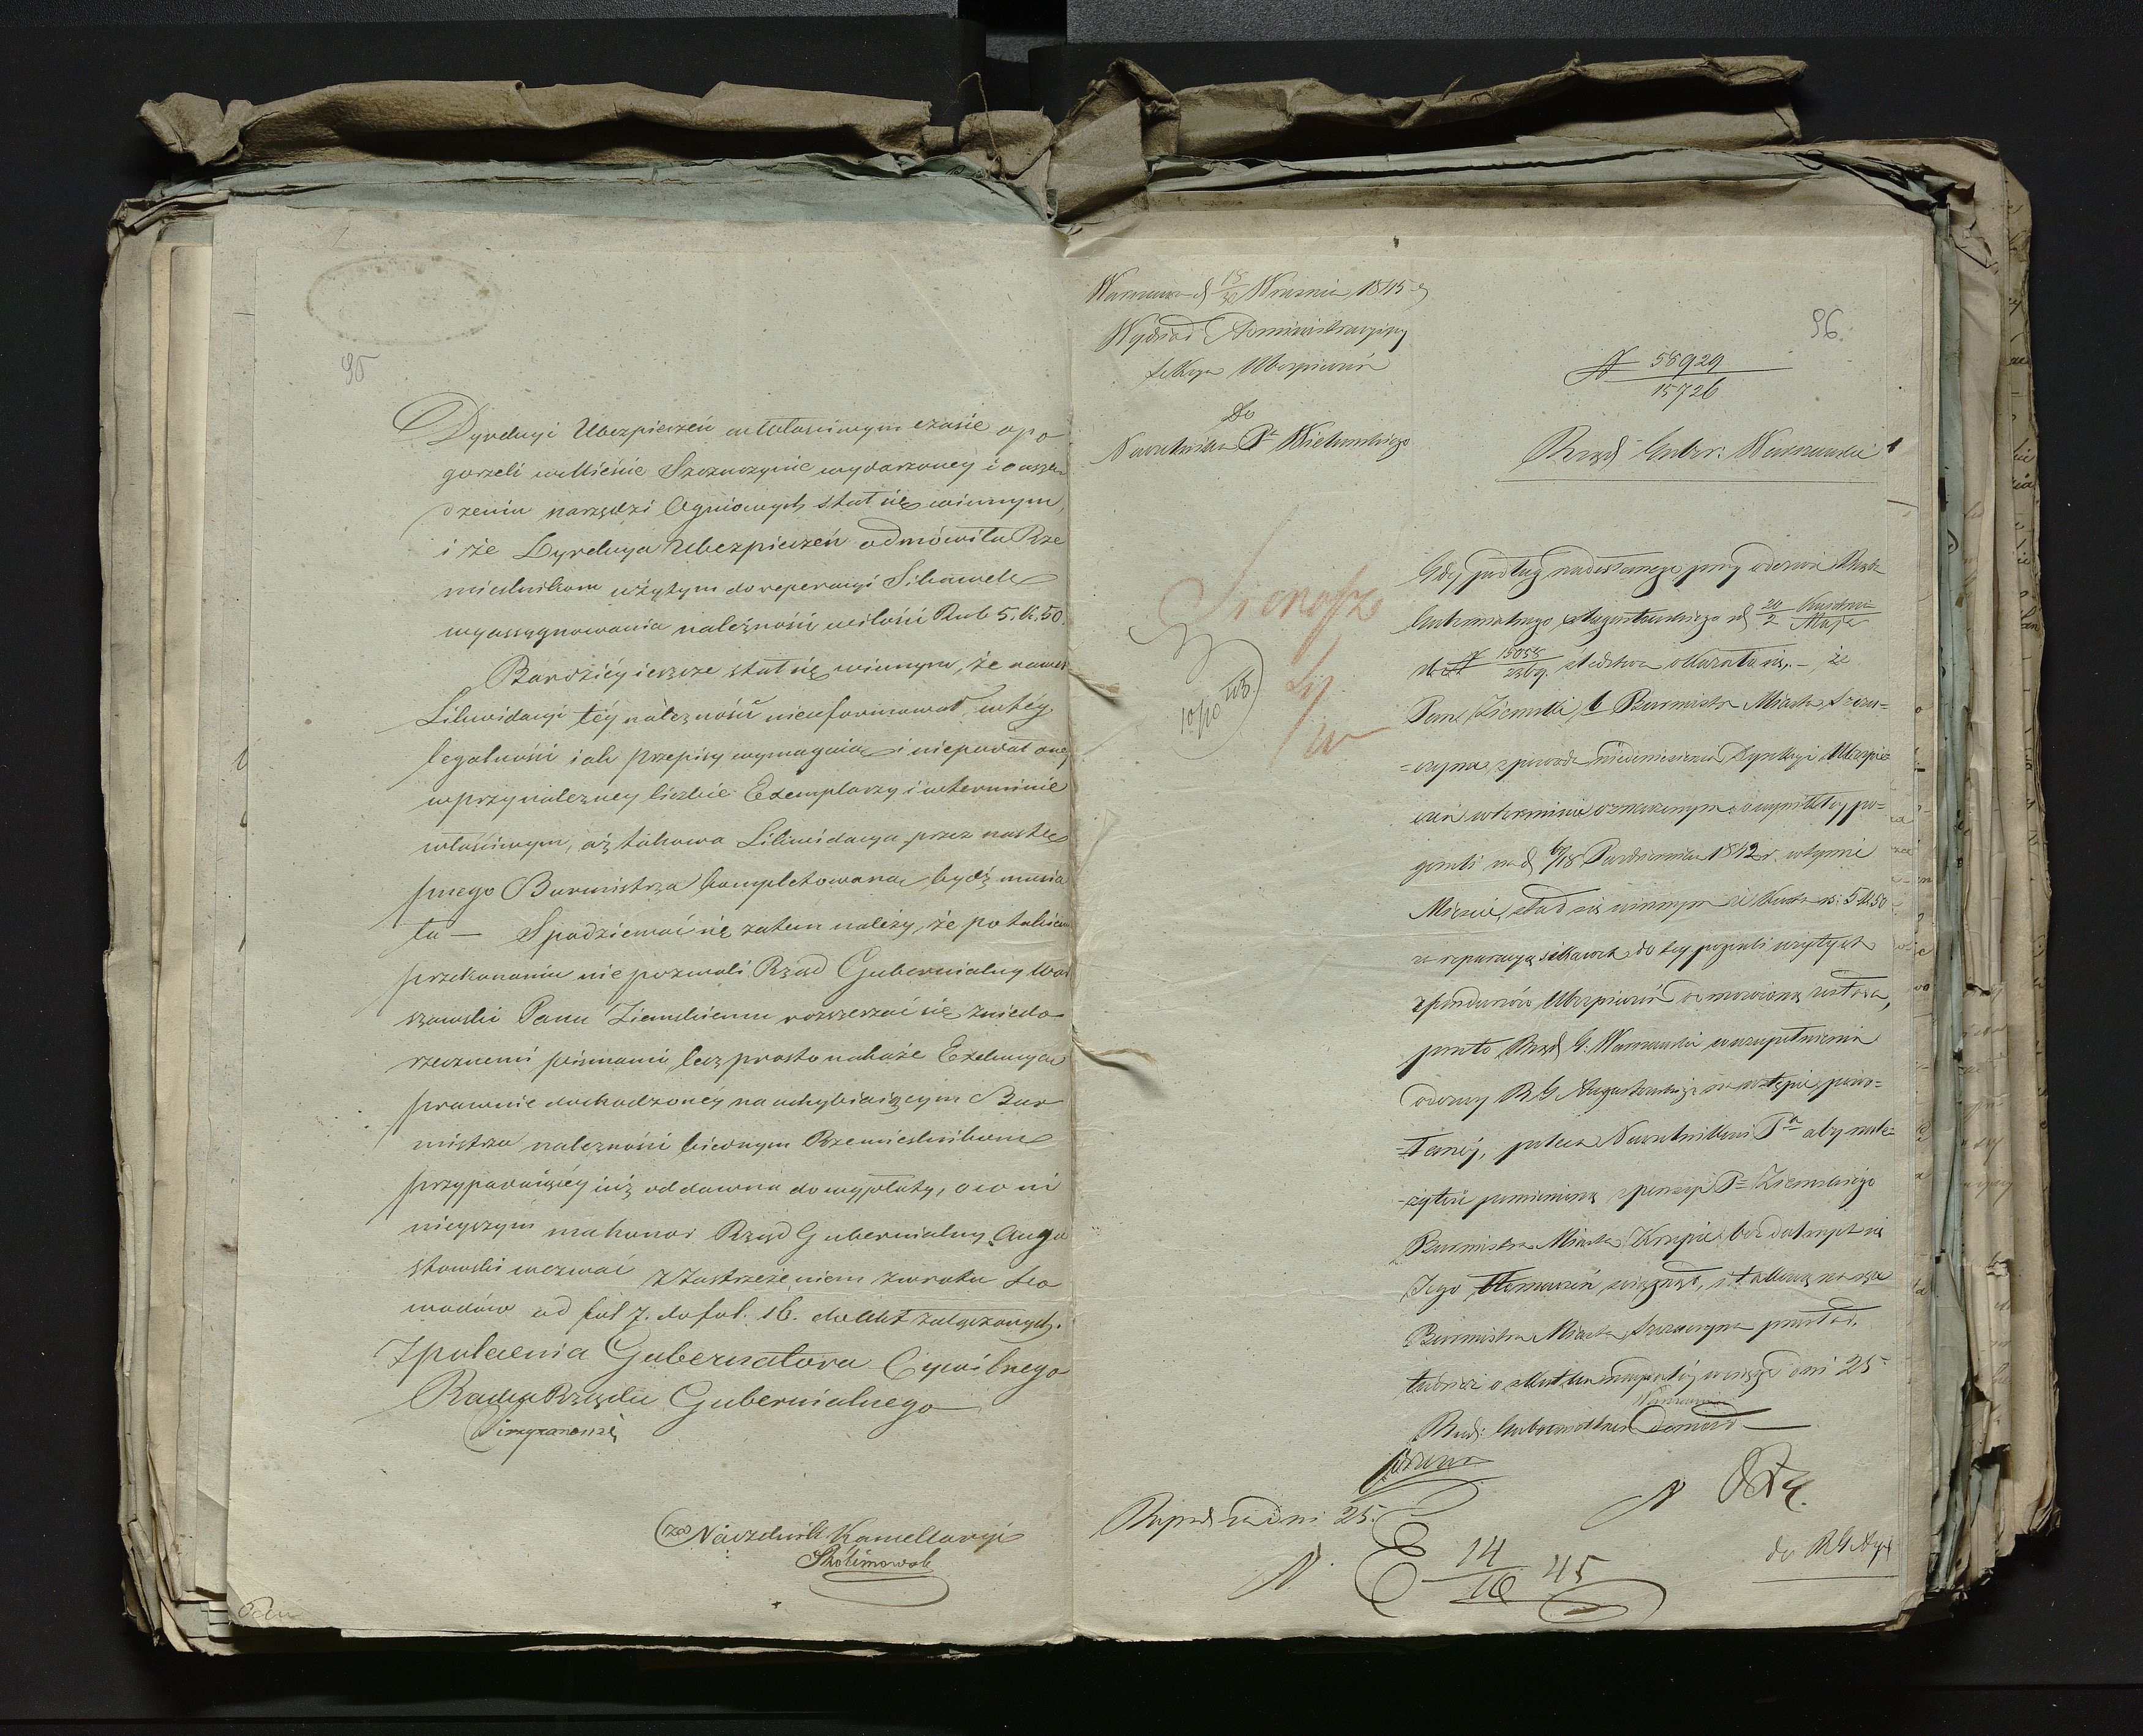 95
Dyrekcyi Ubezpieczeń w właściwym czasie o po
gorzeli w Mieście Szczuczynie wydarzoney i o uszko
dzeniu narzędzi Ogniowych stał się winnym,
i że Dyrekcya Ubezpieczeń odmówiła Rze
mieślnikom użytym do reperacyi Sikawek
wyassygnowania należności w ilości Rub 5. k. 50.
Bardziéy ieszcze stał się winnym, że nawet
Likwidacyi téy należności nieuformował w téy
legalności iak przepisy wymagaią i niepodał oney
w przynależney liczbie Exemplarzy i w terminie
właściwym, aż takowa Likwidacya przez nastę
pnego Burmistrza kompletowaną bydź musia
ła — Spodziewać się zatem należy, że po takiem
przekonaniu nie pozwoli Rząd Gubernialny War
szawski Panu Ziemskiemu rozszerzać się z niedo
rzecznemi pismami, lecz prosto nakaże Exekucyą
prawnie dochodzoney na uchybiaiącym Bur
mistrzu należności biednym Rzemieślnikom
przypadaiącéy iuż oddawna do wypłaty, o co ni
nieyszym ma honor Rząd Gubernialny Augu
stowski wezwać z zastrzeżeniem zwrotu do
wodów od fol 7. do fol. 16. do akt załączonych.
Z polecenia Gubernatora Cywilnego
Radca Rządu Gubernialnego
Naczelnik Kancellaryi
96.
Warszawa d 18/30 Września 1845 r
Wydział Administracyiny
Sekcya Ubezpieczeń
Do
Naczelnika Ptu Wieluńskiego
N 58929/15726
Rząd Guber. Warszawski
Gdy podług nadesłanego przy odezwie Rządu
Gubernialnego Augustowskiego d 20/2 Kwietnia/Maja
śledztwa okazało się, – że
Pan Ziemski b Burmistrz Miasta Szczu=
=czyna z powodu niedoniesienia Dyrekcyi Ubezpie=
czeń w terminie oznaczonym o wynikłéy po=
gorzeli na d 6/18 Października 1842 r. w tymże
Mieście, stał się winnym że kwota rs. 5 k 50
za reparacyą sikawek do téy pogorzeli użytych
z funduszów Ubezpieczeń odmówioną została,
przeto Rząd G. Warszawski w uzupełnieniu
odezwy R G Augustowskiego na wstępie powo=
=łanéj, poleca Naczelnikowi Ptu aby nale=
=żytość pomienioną z pensyi P Ziemskiego
Burmistrza Miasta Krzepic bez dalszych się
Jego tłomaczeń ściągnął, i takową na ręce
Burmistrza Miasta Szczuczyna przesłał,
o skutku naypóźniéj w ciągu dni 25
Rząd: Gubernialnemu doniósł
Repod za dni 25.
N
N.
14/10 45
do RG Aug